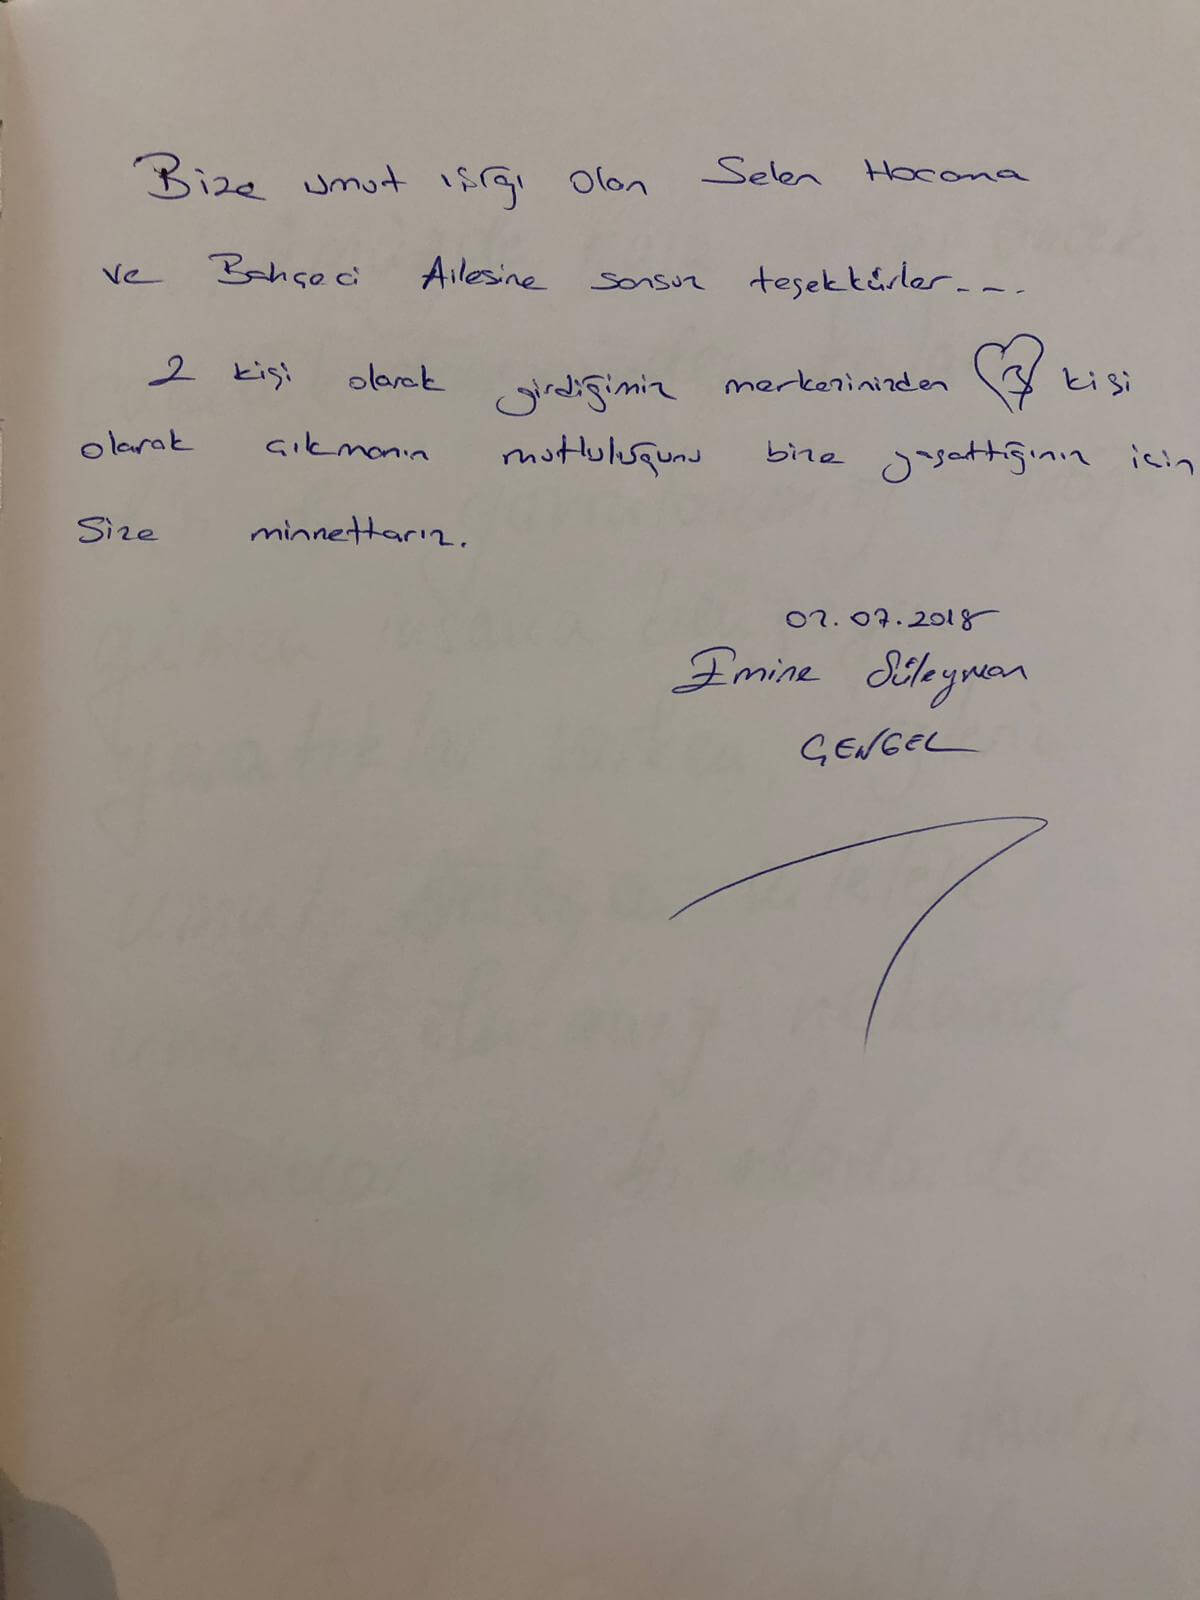 Bize umut ışığı olan Selen Hocama
ve Bahçeci Ailesine sonsuz teşekkürler....
2 kişi olarak girdiğimiz merkezinizden 3 kişi
olarak çıkmanın mutluluğunu bize yaşattığınız için
Size minnettarız.
02.07.2018
Emine Süleyman
GENGEL